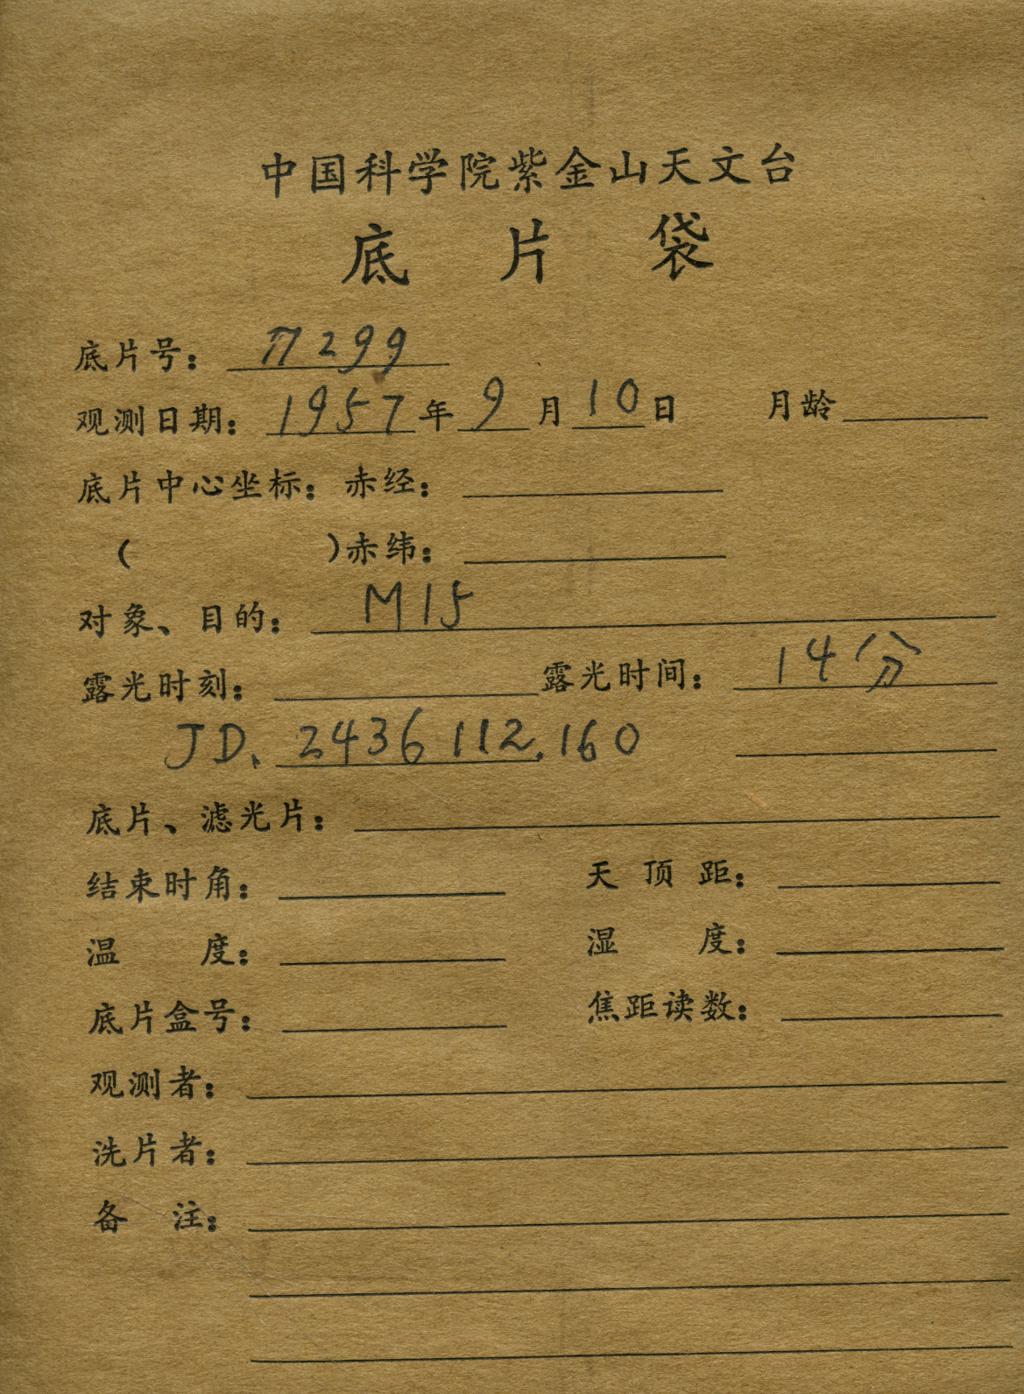 中国科学院紫金山天文台
底片袋
底片号：π299
观测日期：1957年9月10日 月龄
底片中心坐标：赤经：
( )赤纬：
对象、目的：M15
露光时刻： 露光时间：14分
JD. 2436112.160
底片、滤光片：
结束时角： 天顶距：
温度： 湿度：
底片盒号： 焦距读数：
观测者：
洗片者：
备注：